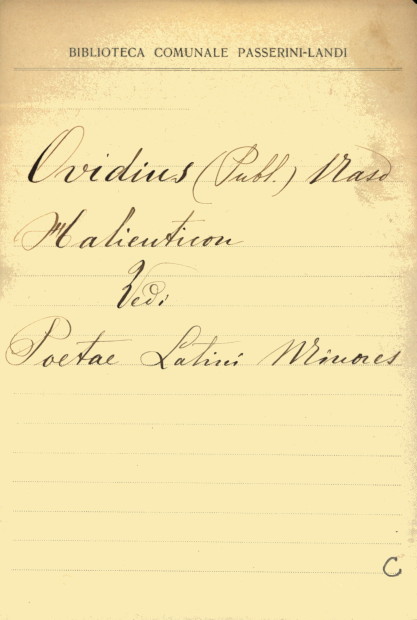 BIBLIOTECA COMUNALE PASSERINI-LANDI
Ovidius (Publ.) Naso
Halieuticon
Vedi
Poetae Latini Minores
C